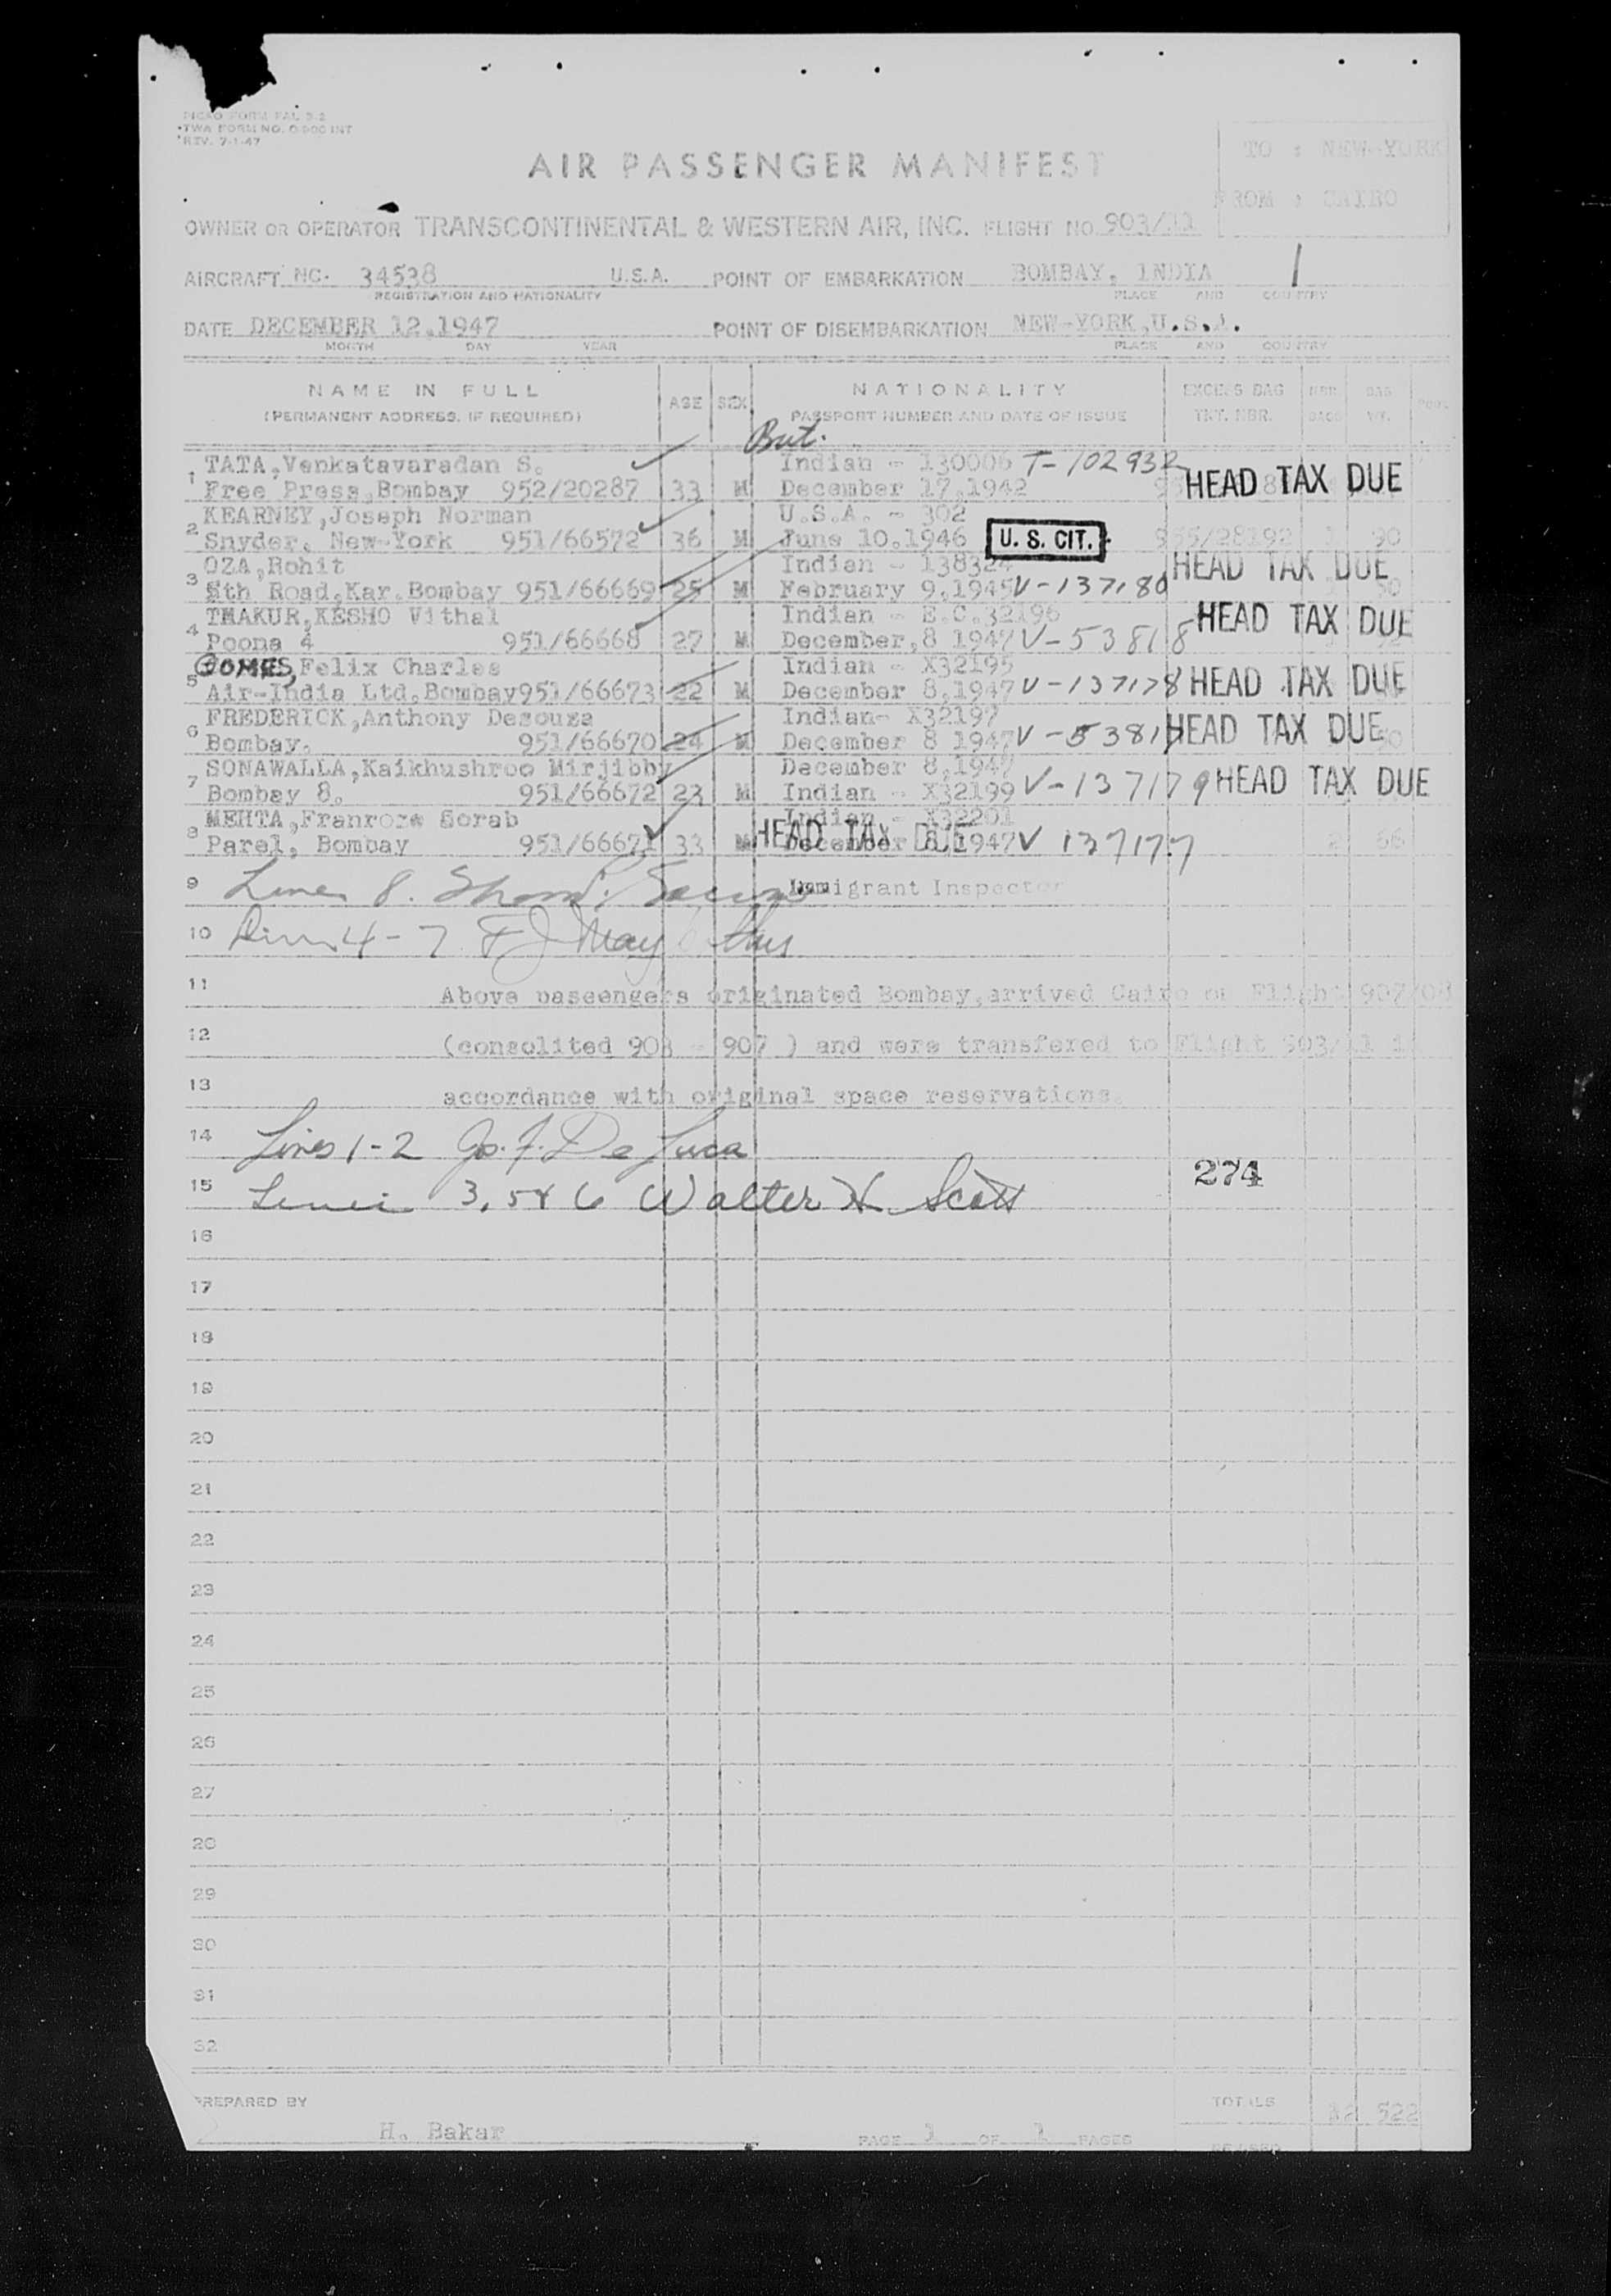 PICAO FORM FAL 3-2
TWA FORM NO. O-900 INT
REV. 7-1-47
TO : NEW-YORK
FROM : CAIRO
AIR PASSENGER MANIFEST
OWNER OR OPERATOR TRANSCONTINENTAL & WESTERN AIR, INC. FLIGHT NO. 903/11
AIRCRAFT NC- 34538 U.S.A. POINT OF EMBARKATION BOMBAY, INDIA 1
REGISTRATION AND NATIONALITY PLACE AND COUNTRY
DATE DECEMBER 12,1947 POINT OF DISEMBARKATION NEW-YORK,U.S.A.
MONTH DAY YEAR PLACE AND COUNTRY
NAME IN FULL AGE SEX NATIONALITY EXCESS BAG
(PERMANENT ADDRESS, IF REQUIRED) PASSPORT NUMBER AND DATE OF ISSUE TKT. NBR. NBR. BAGS BAG WT.
TATA,Venkatavaradan S. Indian - 130006 T-102932
1 Free Press,Bombay 952/20287 33 M December 17,1942 HEAD TAX DUE
KEARNEY,Joseph Norman U.S.A. - 302
2 Snyder, New-York 951/66572 36 M June 10,1946 U. S. CIT. 955/28192 1 90
OZA,Rohit Indian - 138324 HEAD TAX DUE
3 8th Road,Kar.Bombay 951/66669 25 M February 9,1945 V-137180
THAKUR,KESHO Vithal Indian - E.C.32196 HEAD TAX DUE
4 Poona 4 951/66668 27 M December,8 1947 V-53818
GOMES, Felix Charles Indian - X32195
5 Air-India Ltd,Bombay951/66673 22 M December 8,1947 V-137178 HEAD TAX DUE
FREDERICK,Anthony Desouza Indian- X32197 HEAD TAX DUE
6 Bombay. 951/66670 24 M December 8 1947 V-5381
SONAWALLA,Kaikhushroo Mirjibby December 8,1947
7 Bombay 8. 951/66672 23 M Indian - X32199 V-137179 HEAD TAX DUE
MEHTA,Framroze Sorab Indian - X32201
8 Parel, Bombay 951/66671 33 M HEAD TAX DUE December 8,1947 V 137177 2 66
9 Lines 8. Immigrant Inspector
10 Lines 4-7
11 Above passengers originated Bombay,arrived Cairo on Flight 907/08
12 (consolited 903 - 907 ) and were transfered to Flight 903/11 in
13 accordance with original space reservations.
14 Lines 1-2 Jos. F. De Luca
15 Lines 3, 5 & 6 Walter H Scott 274
16
17
18
19
20
21
22
23
24
25
26
27
28
29
30
31
32
PREPARED BY H. Bakar PAGE 1 OF 1 PAGES TOTALS 12 522